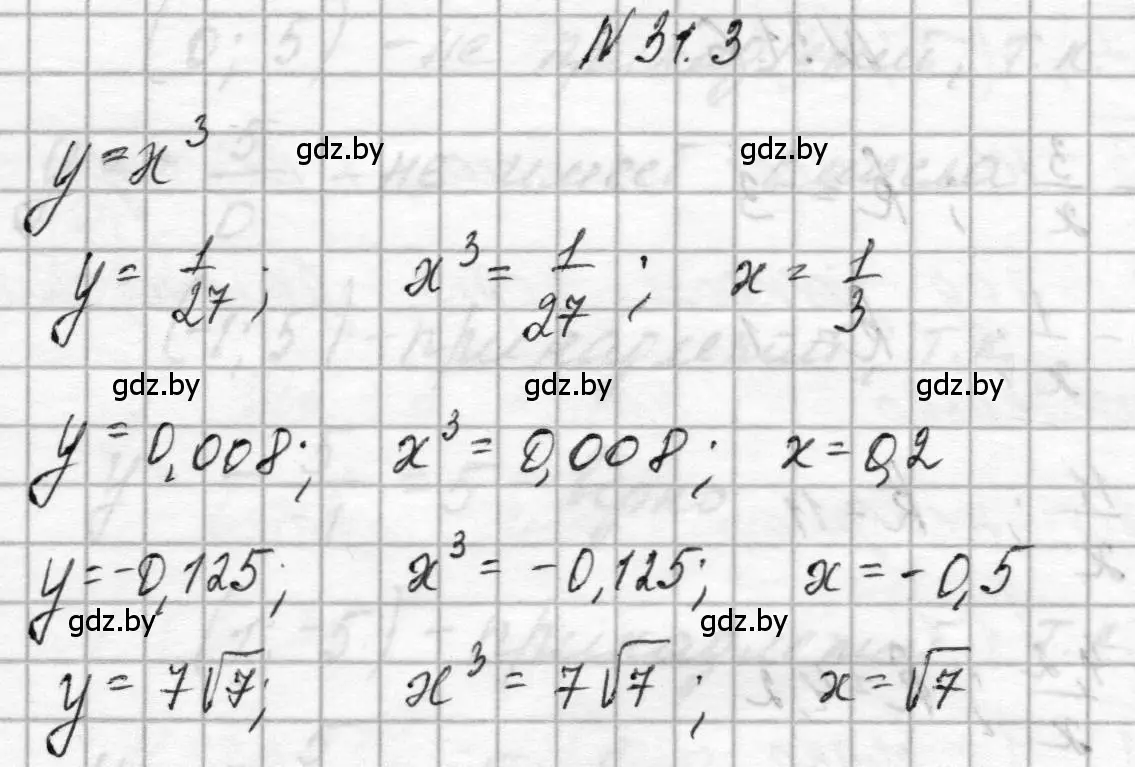 N 31.3
y = x³
gdz.by gdz.by
y = 1/27; x³ = 1/27; x = 1/3
gdz.by gdz.by gdz.by
y = 0,008; x³ = 0,008; x = 0,2
y = -0,125; x³ = -0,125; x = -0,5
gdz.by gdz.by
y = 7√7; x³ = 7√7; x = √7